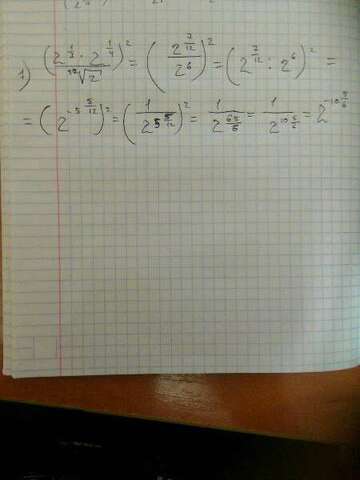 1) (2^{1/3} · 2^{1/4} / ¹²√2)² = (2^{7/12} / 2^6)² = (2^{7/12} : 2^6)² =
= (2^{-5 5/12})² = (1 / 2^{5 5/12})² = 1 / 2^{65/6} = 1 / 2^{10 5/6} = 2^{-10 5/6}